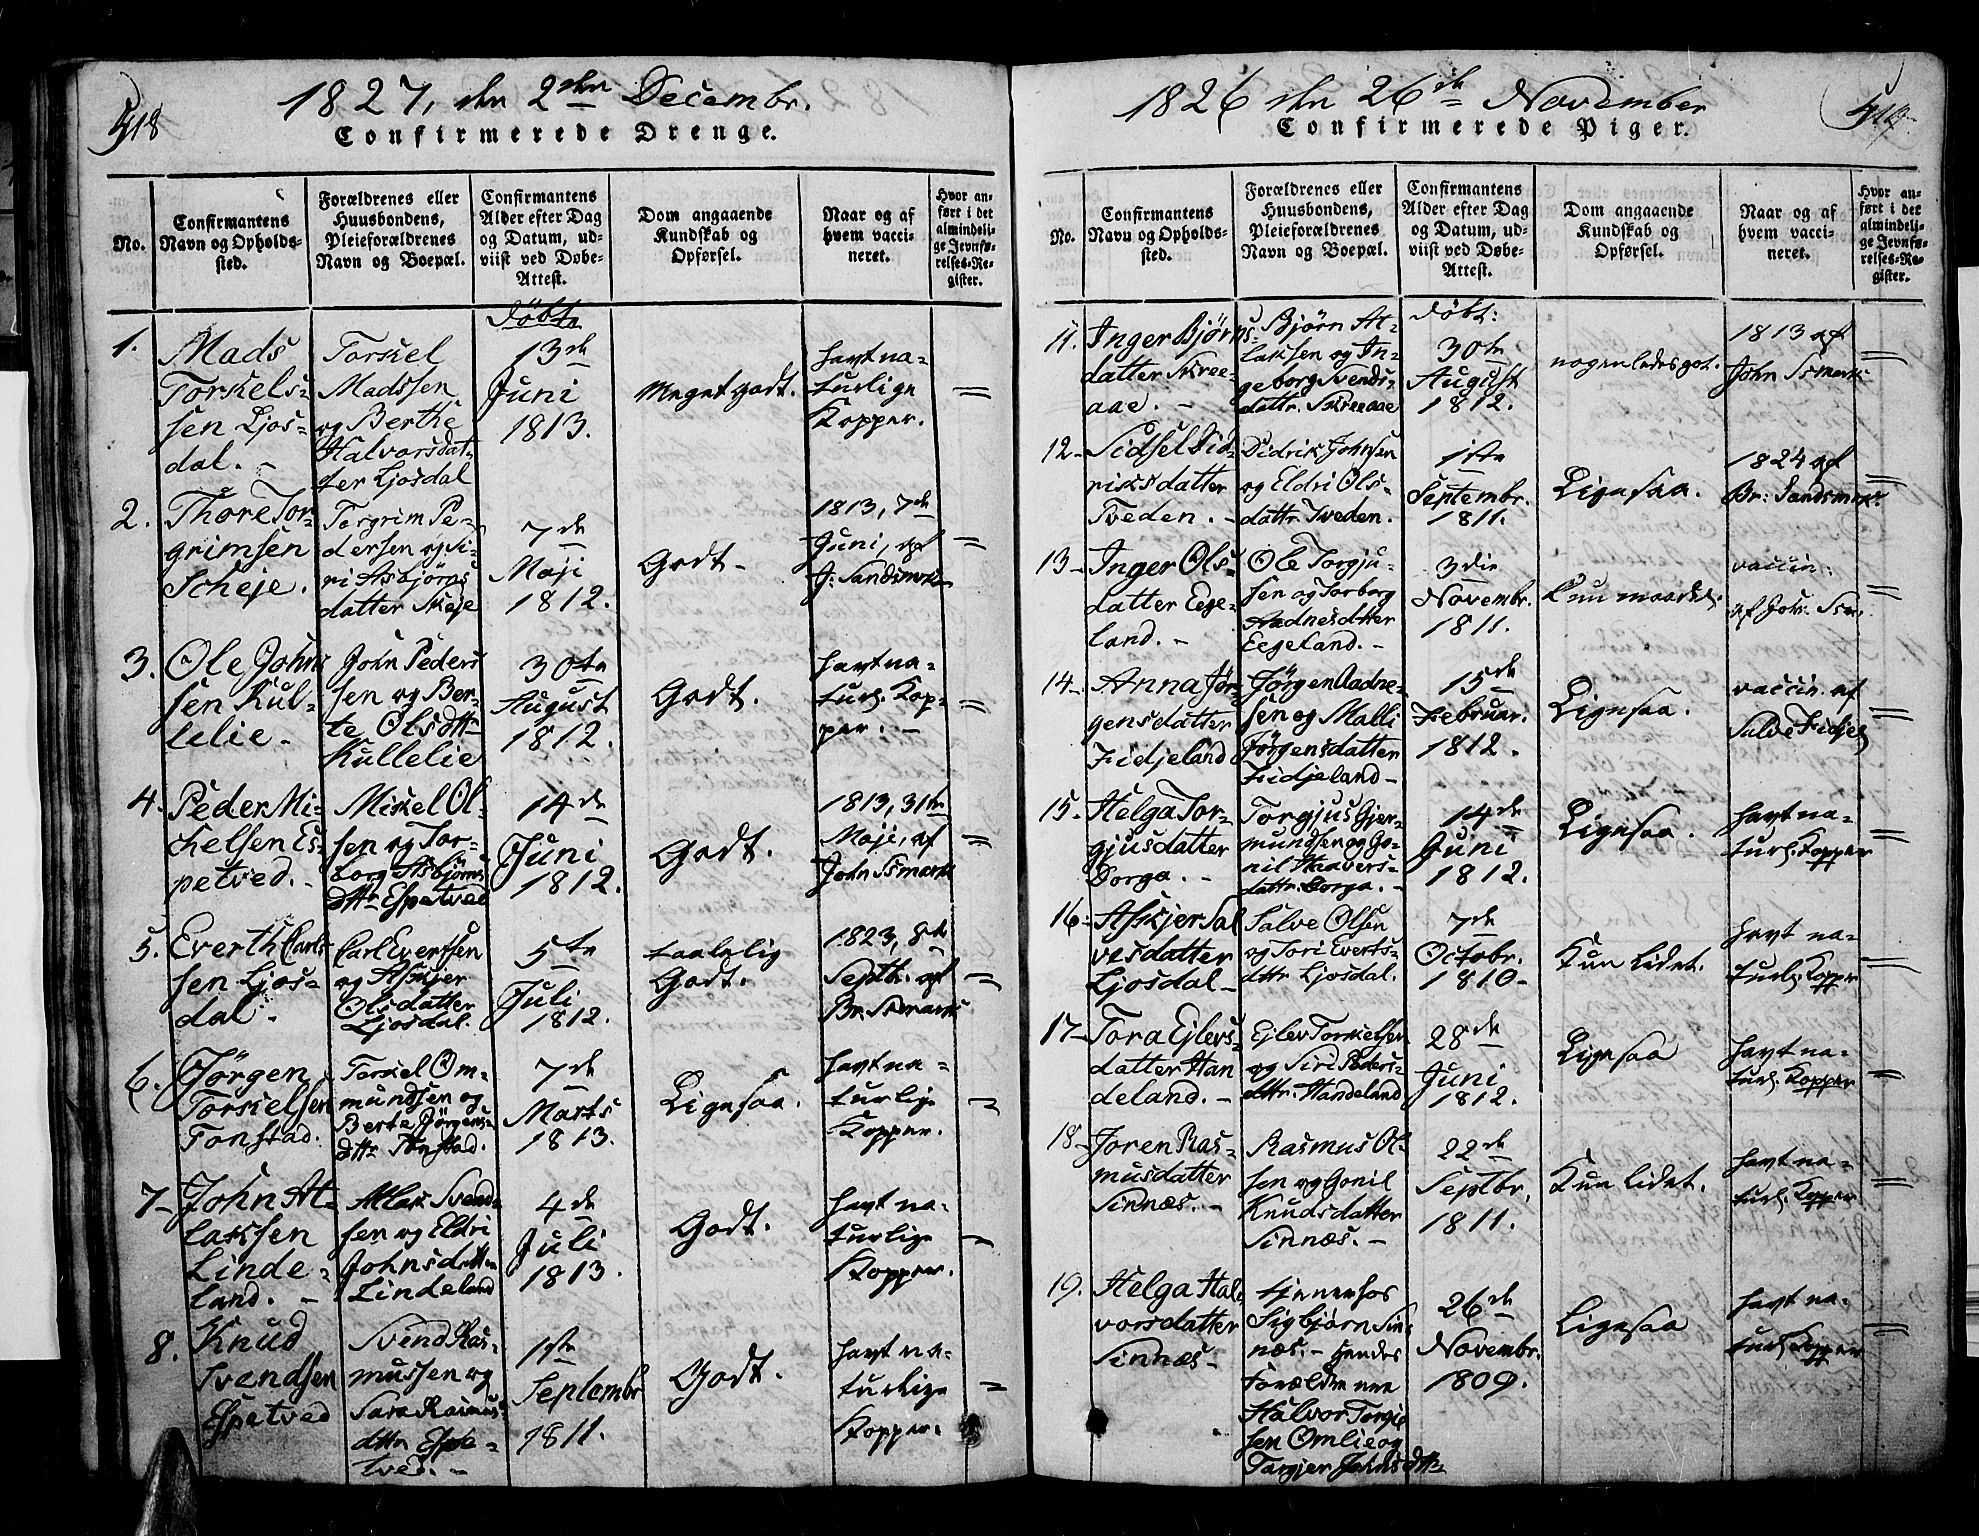 518
1827, den 2den Decembr.
Confirmerede Drenge.
No.
Confirmantens
Navn og Opholds-
sted.
Forældrenes eller
Huusbondens,
Pleieforældrenes
Navn og Boepæl.
Confirmantens
Alder efter Dag
og Datum, ud-
viist ved Døbe-
Attest.
Dom angaaende
Kundskab og
Opførsel.
Naar og af
hvem vacci-
neret.
Hvor an-
ført i det
almindeli-
ge Jevnfø-
relses-Re-
gister.
1.
Mads
Torkels-
sen Ljos-
dal. -
Torkel
Madssen
og Berthe
Halvorsdat-
ter Ljosdal
Døbte
13de
Juni
1813.
Meget godt.
havt na-
turlige
Kopper.
=
2.
Thore Tor-
grimsen
Scheje.
Torgrim Pe-
dersen og Si-
ri Asbjørns
datter Skeje
7de
Maji
1812.
Godt -
1813, 7de
Juni, af
J. Sandsmrk
=
3.
Ole Johns
sen Kul-
lelie -
John Peders
sen og Ber-
te Olsdttr
Kullelie
30te
August
1812.
Godt.
havt na-
turl. Kop-
per. -
=
4.
Peder Mi-
chelsen Es-
petved. -
Mikel Ol-
sen og Tor-
borg Asbjørns
dttr Espetved
14de
Juni
1812.
Godt.
1813, 31te
Maji, af
John Ssmark
=
5.
Everth Carls
sen Ljos-
dal -
Carl Evertsen
og Askjer
Olsdatter
Ljosdal.
5te
Juli
1812.
taalelig
Godt.
1823, 8de
Septbr. af
Br. Ssmark
=
6.
Jørgen
Torkelsen
Tonstad.
Torkel Om-
mundsen og
Berte Jørgens-
dttr Tonstad.
7de
Marts
1813.
Ligesaa.
havt na-
turlige
Kopper.
=
7-
John At-
laksen
Linde-
land. -
Atlak Svend-
sen og Eldri
Johnsdatter
Lindeland
4de
Juli
1813.
Godt.
havt na-
turlige
Kopper.
=
8.
Knud
Svendsen
Espetved
Svend Ras-
mussen og
Sara Rasmus-
dttr Espe-
tved. -
1ste
Septembr
1811.
Godt.
havt na-
turlige
Kopper.
=
1826 den 26de November
Confirmerede Piger.
No.
Confirmantens
Navn og Opholds-
sted.
Forældrenes eller
Huusbondens,
Pleieforældrenes
Navn og Boepæl.
Confirmantens
Alder efter Dag
og Datum, ud-
viist ved Døbe-
Attest.
Dom angaaende
Kundskab og
Opførsel.
Naar og af
hvem vacci-
neret.
Hvor an-
ført i det
almindeli-
ge Jevnfø-
relses-Re-
gister.
11.
Inger Bjørns-
datter Skree-
aae. -
Bjørn At-
laksen og In-
geborg Svends-
dattr. Skreeaae
Døbt:
30te
August
1812.
nogenledes got.
1813 af
John Ssmark
=
12-
Sidsel Did-
riksdatter
Tveden. -
Didrik Johnsen
og Eldri Ols-
dattr. Tveden.
1ste
Septembr.
1811.
Ligesaa.
1824 af
Br: Sandsmrk.
=
13-
Inger Ols-
datter Eege-
land. -
Ole Torgju-
sen og Torborg
Aadnesdatter
Eegeland. -
3die
Novembr.
1811.
Kun maadel.
vaccin.
af Joh. Ssm.
=
14-
Anna Jør-
gensdatter
Fidjeland
Jørgen Aadne-
sen og Malli
Jørgensdatter
Fidjeland -
15de
Februar.
1812.
Ligesaa.
vaccin. af
Salve Fidjel
=
15.
Helga Tor-
gjusdatter
Dorga. -
Torgjus Gjer-
mundsen og Go-
nil Haavers-
dattr. Dorga. -
14de
Juni
1812.
Ligesaa.
havt na-
turl. Kopper
=
16.
Askjer Sal
vesdatter
Ljosdal -
Salve Olsen
og Tori Everts-
dttr. Ljosdal.
7de
Octobr.
1810-
Kun lidet.
havt na-
turl. Kopper
=
17-
Tora Ejlers-
datter Han
deland. -
Ejlev Torkelsen
og Siri Peders-
dttr. Handeland
28de
Juni
1812.
Ligesaa
havt na-
turl. Kopper
=
18-
Joren Ras-
musdatter
Sinnæs. -
Rasmus Ol-
sen og Gonil
Knudsdatter
Sinnæs. -
22de
Septbr.
1811.
Kun lidet.
havt na-
turl. Kopper
=
19.
Helga Hal-
vorsdatter
Sinnæs -
tjener hos
Sigbjørn Sin-
næs. - hendes
Forældre ere
Halvor Torgie
sen Omlie og
Targjer Johnsdttr
26de
Novembr.
1809.
Ligesaa
havt na-
turl. Kopper
=